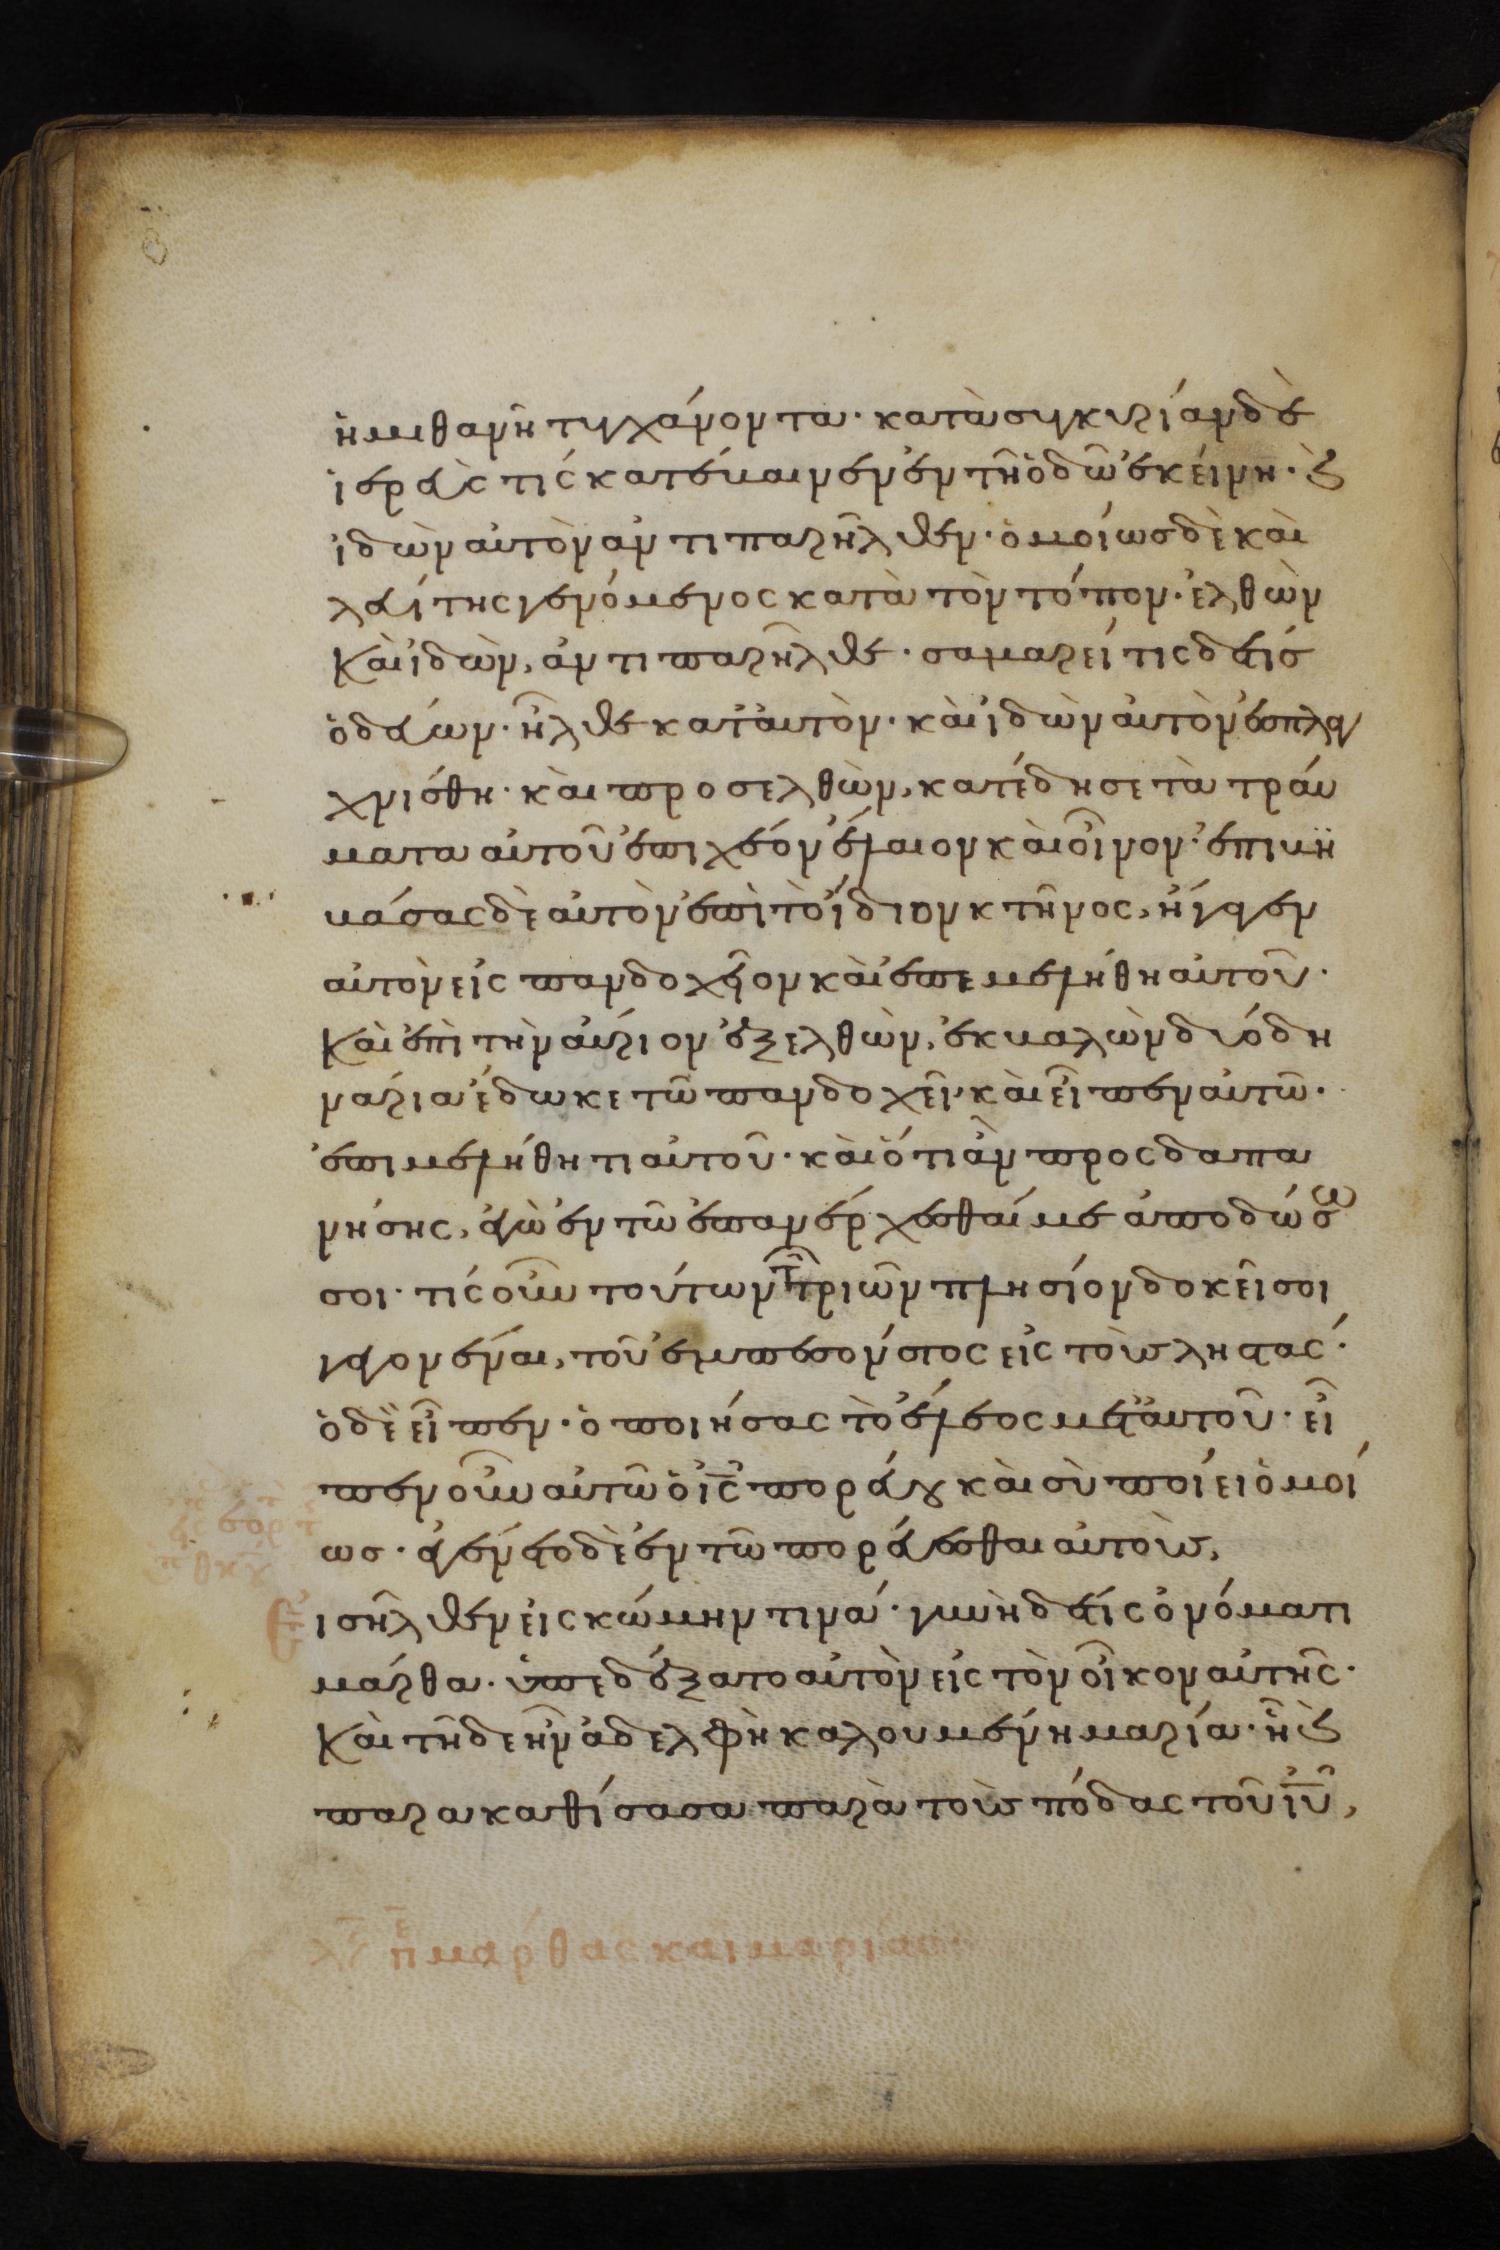 ἡμιθανῆ τυχάνοντα· κατὰ συγκυρίαν δὲ
ἱερεύς τίς κατέβαινεν ἐν τῆ ὁδῶ ἐκείνη· καὶ
ἰδὼν αὐτὸν ἀντιπαρῆλθεν· ὁμοίως δὲ καὶ
λευίτης γενόμενος κατὰ τὸν τόπον· ἐλθὼν
καὶ ἰδὼν, ἀντιπαρῆλθε· σαμαρείτις δέ τίς
ὁδεύων· ἦλθε κατ' αὐτὸν· καὶ ἰδὼν αὐτὸν ἐσπλαγ
χνίσθη· καὶ προσελθὼν, κατέδησε τὰ τραύ
ματα αὐτοῦ ἐπιχέον ἔλαιον καὶ οἶνον· ἐπιβη
βάσας δὲ αὐτὸν ἐπὶ τὸ ἴδιον κτῆνος, ἤγαγεν
αὐτὸν εἰς πανδοχεῖον καὶ ἐπεμελήθη αὐτοῦ·
καὶ ἐπὶ τὴν αὔριον ἐξελθὼν, ἐκβαλὼν δύο δη
νάρια ἔδωκε τῶ πανδοχεῖ· καὶ εἶπεν αὐτῶ·
ἐπιμελήθητι αὐτοῦ· καὶ ὅτι ἂν προσδαπα
νήσης, ἐγὼ ἐν τῶ ἐπανέρχεσθαί με ἀποδώσω
σοι· τίς οὖν τούτων τῶν τριῶν πλησίον δοκεῖ σοι
γεγονέναι, τοῦ ἐμπεσόντος εἰς τοὺς ληστάς·
ὁ δὲ εἶπεν· ὁ ποιήσας τὸ ἔλεος μετ' αὐτοῦ· εἶ
πεν οὖν αὐτῶ ὁ ἰς̅ πορεύου καὶ σὺ ποίει ὁμοί
ως· ἐγένετο δὲ ἐν τῶ πορεύεσθαι αὐτοὺς,
Εἰσῆλθεν εἰς κώμην τινά· γυνὴ δέ τίς ὀνόματι
μάρθα· ὑπεδέξατο αὐτὸν εἰς τὸν οἶκον αὐτῆς·
καὶ τῆδε ἦν ἀδελφὴ καλουμένη μαρία· ἣ καὶ
παρακαθίσασα παρὰ τοὺς πόδας τοῦ ἰυ̅,
π μάρθας καὶ μαρίας